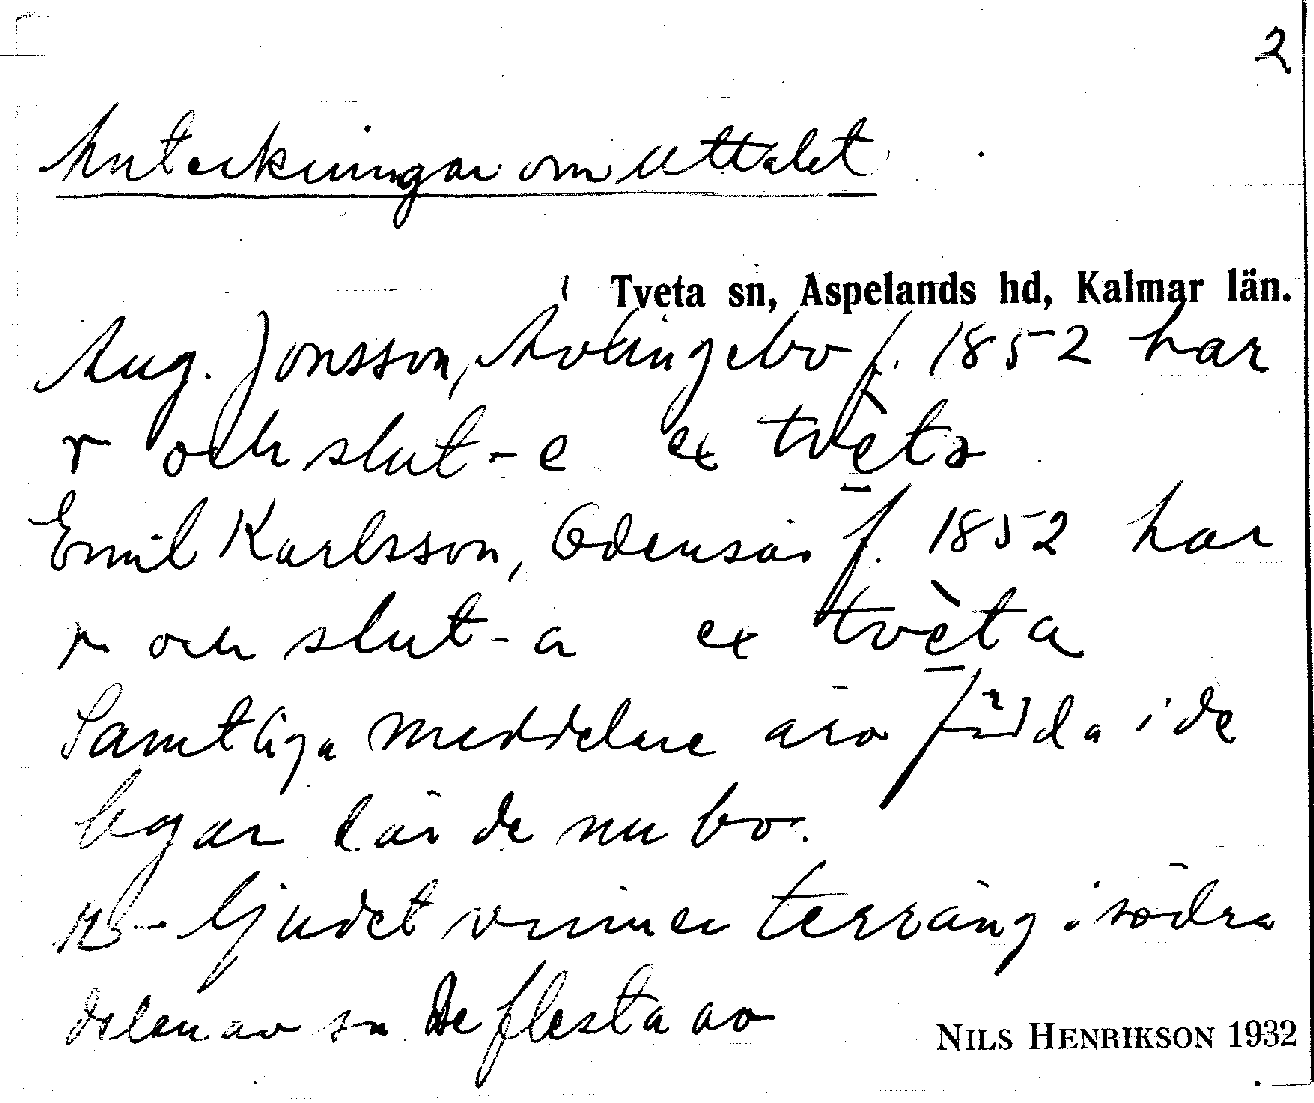 2
Anteckningar om uttalet
i Tveta sn, Aspelands hd, Kalmar län.
Aug. Jonsson, f. 1852 har
r och slut-e ex tvètə
Emil Karlsson, Odensås f. 1852 har
r och slut-a ex tvèta
Samtliga meddelare äro födda i de
byar där de nu bo.
-ljudet vinner terräng i södra
delen av sn De flesta av
NILS HENRIKSON 1932